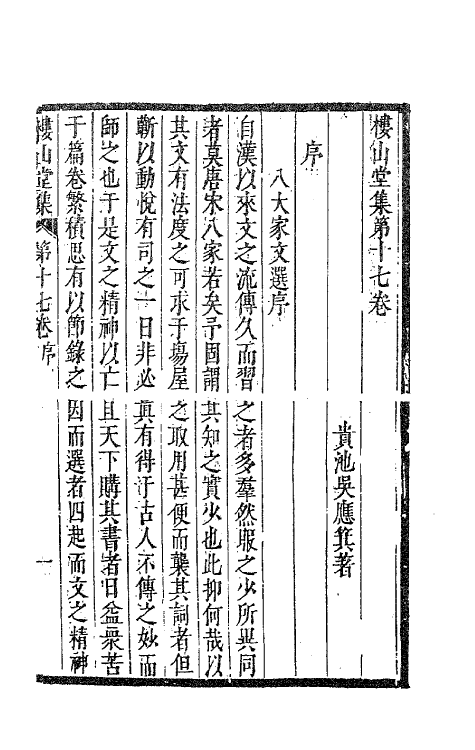 樓山堂集第十七卷
貴池吳應箕著
序
八大家文選序
自漢以來文之流傳久而習之者多羣然服之少所異同
者莫唐宋八家若矣予固謂其知之實少也此抑何哉以
其文有法度之可求于場屋之取用甚便而襲其詞者但
蘄以動悅有司之一日非必真有得于古人不傳之妙而
師之也于是文之精神以亡且天下購其書者日益衆苦
于篇卷繁積思有以節錄之因而選者四起而文之精神
樓山堂集 第十七卷 序 一